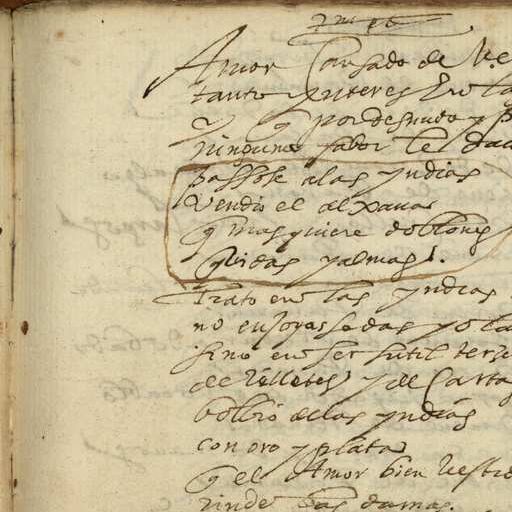 Amor Cansado de Ve
tanto ynteres en la
y q por desnudo y p
ninguno fabor le dau
passose alas yndias
vendio el alxaua
q mas quiere doblones
q vidas y almas.
trato en las yndias
no en joyas sedas y ola
sino en ser sutil terce
de villetes y de Cartas
bolbio delas yndias
con oro y plata
q el Amor bien vestido
rinde las damas.